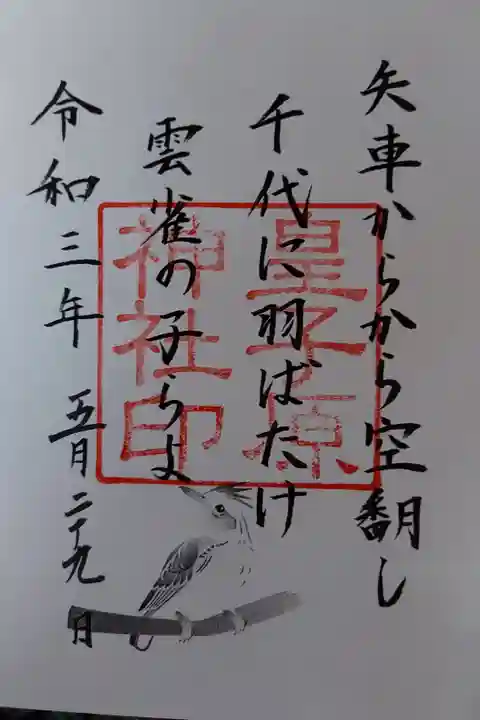 矢車からから空翻し
千代に羽ばたけ
雲雀の子らよ
令和三年 五月二十九日
皇子原
神社印